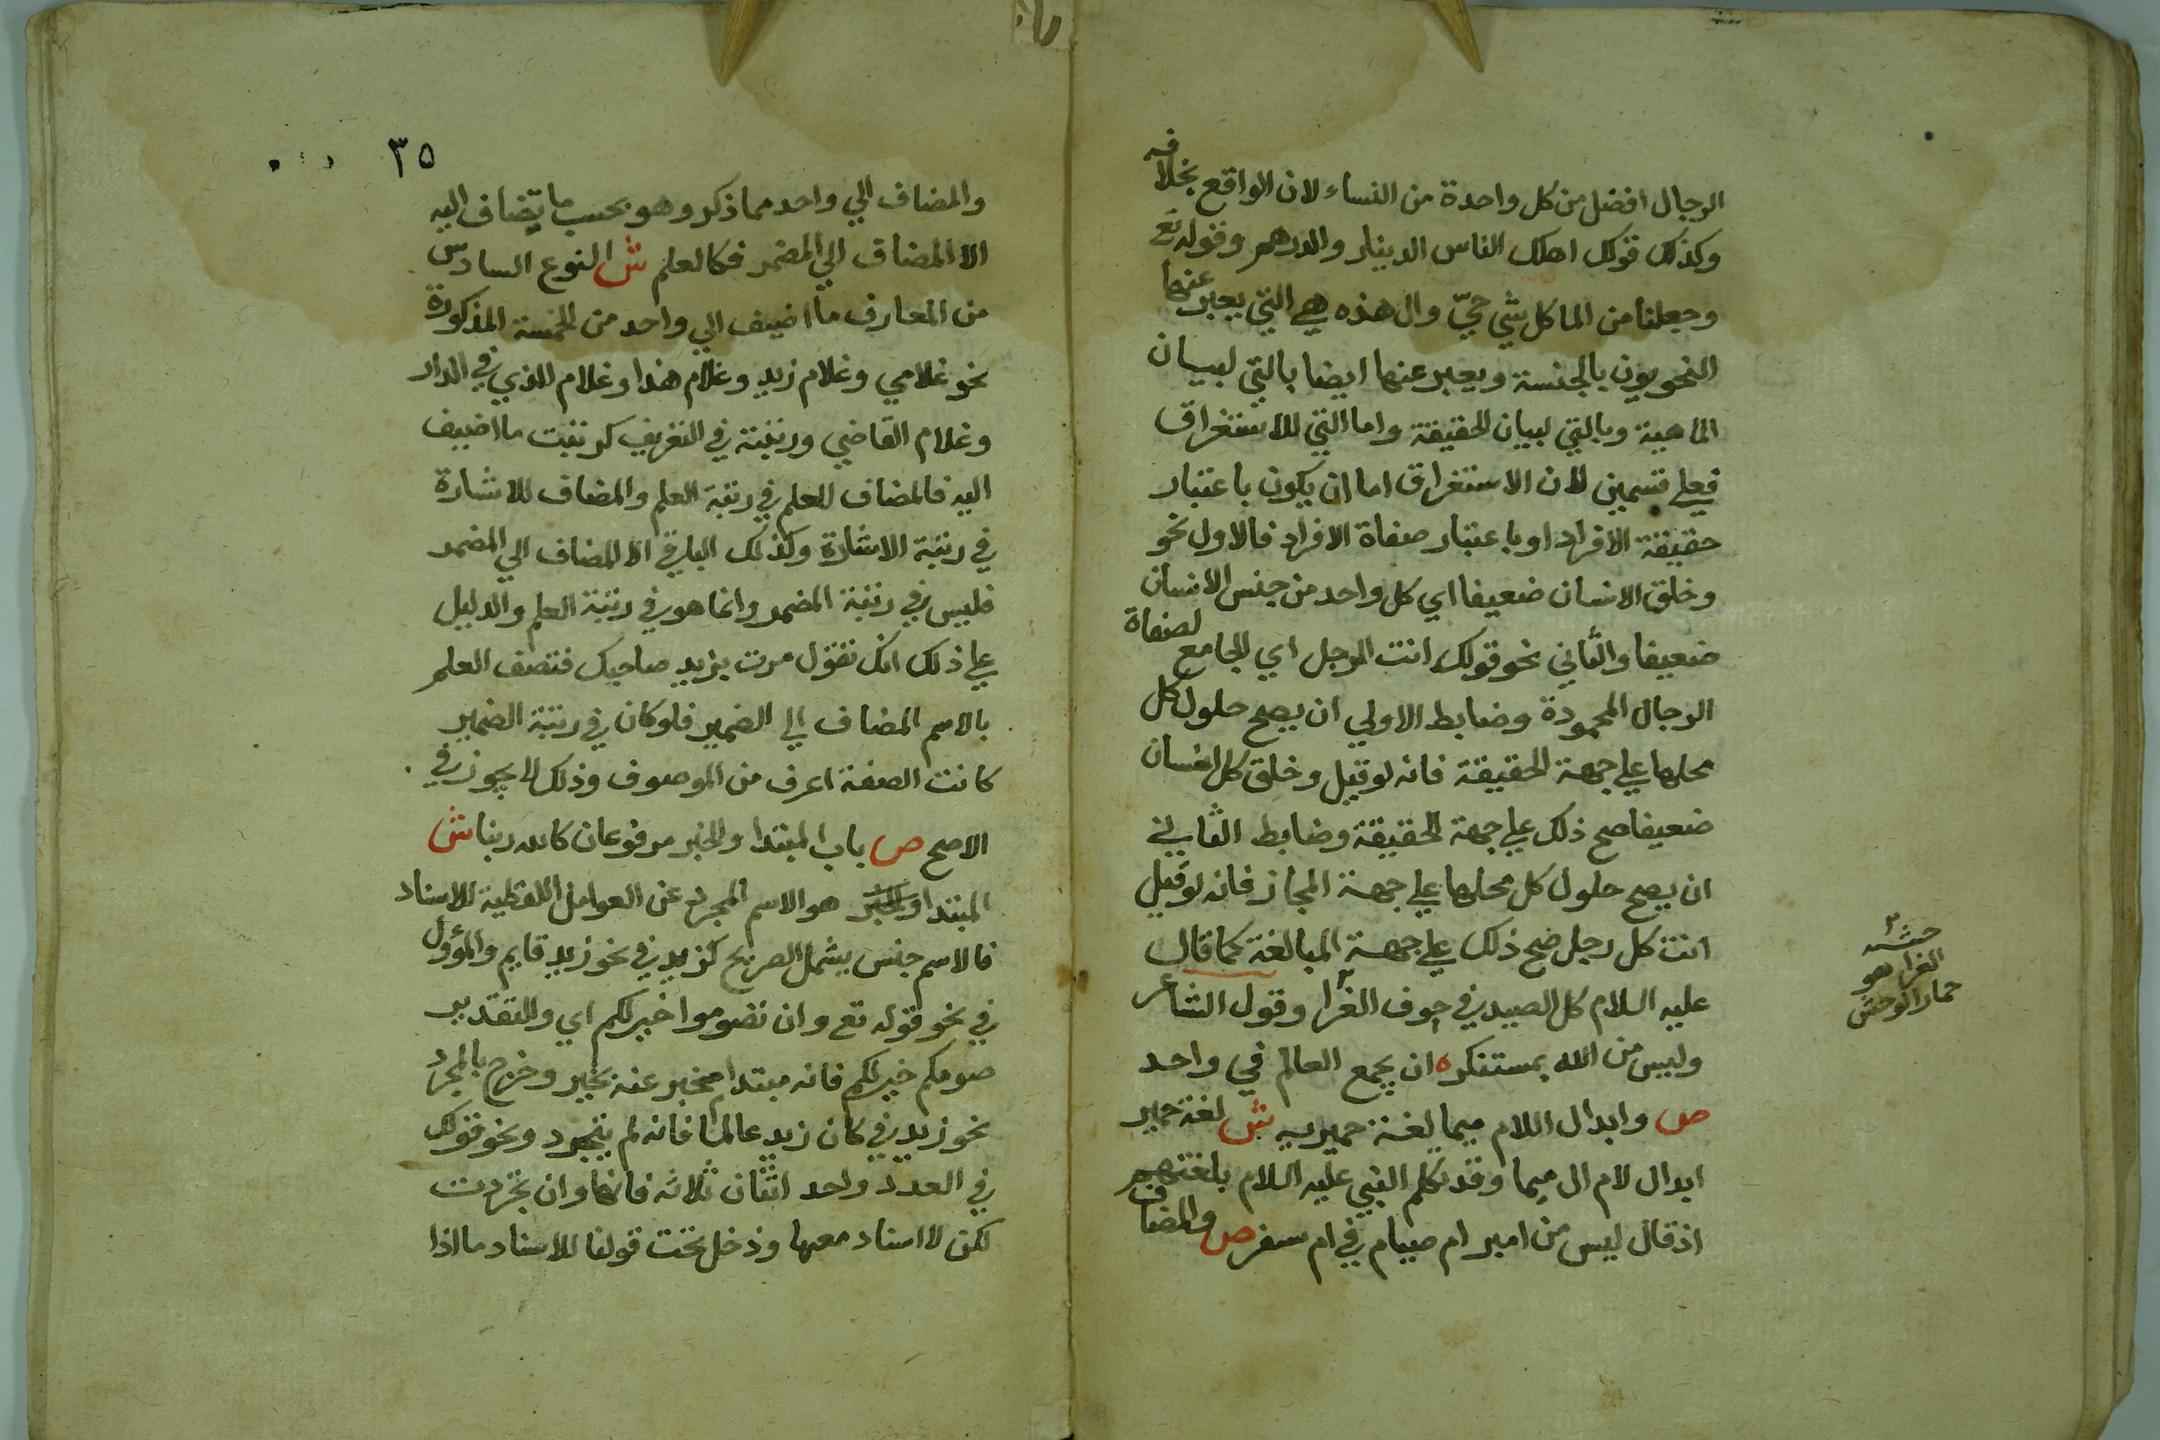 الرجال افضل من كل واحدة من النساء لان الواقع بخلافه
وكذلك قولك اهلك الناس الدينار والدرهم وقوله تع
وجعلنا من الما كل شي حيّ وال هذه هي التي يعبر عنها
النحويون بالجنسة ويعبر عنها ايضا بالتي لبيان
الماهية وبالتي لبيان الحقيقة واما التي للاستغراق
فعلي قسمين لان الاستغراق اما ان يكون باعتبار
حقيقة الافراد او باعتبار صفاة الافراد فالاول نحو
وخلق الانسان ضعيفا اي كل واحد من جنس الانسان
ضعيفا والثاني نحو قولك انت الرجل اي الجامع لصفاة
الرجال المحمودة وضابط الاولي ان يصح حلول كل
محلها علي جهة الحقيقة فانه لو قيل وخلق كل انسان
ضعيفا صح ذلك علي جهة الحقيقة وضابط الثاني
ان يصح حلول كل محلها علي جهة المجاز فانه لو قيل
انت كل رجل صح ذلك علي جهة المبالغة كما قال
عليه السلام كل الصيد في جوف الفرا وقول الشاعر
وليس من الله بمستنكره ان يجمع العالم في واحد
ص وابدال اللام ميما لغة حميرية ش لغة حمير
ابدال لام ال ميما وقد تكلم النبي عليه السلام بلغتهم
اذ قال ليس من امبر ام صيام في ام سفر ص والمضاف
الفرا هو
حمار الوحش
٣٥
والمضاف الي واحد مما ذكر وهو بحسب ما يضاف اليه
الا المضاف الي المضمر فكالعلم ش النوع السادس
من المعارف ما اضيف الي واحد من الخمسة المذكورة
نحو غلامي وغلام زيد وغلام هذا وغلام الذي في الدار
وغلام القاضي ورتبته في التعريف كرتبت ما اضيف
اليه فالمضاف للعلم في رتبة العلم والمضاف للاشارة
في رتبة الاشارة وكذلك الباقي الا المضاف الي المضمر
فليس في رتبة المضمر وانما هو في رتبة العلم والدليل
علي ذلك انك تقول مرت بزيد صاحبك فتصف العلم
بالاسم المضاف الي الضمير فلو كان في رتبة الضمير
كانت الصفة اعرف من الموصوف وذلك لا يجوز في
الاصح ص باب المبتدا والخبر مرفوعان كالله ربنا ش
المبتدا والخبر هو الاسم المجرد عن العوامل اللفظية للاسناد
فالاسم جنس يشمل الصريح كزيد في نحو زيد قايم والمؤول
في نحو قوله تع وان تصوموا خير لكم اي والتقدير
صومكم خير لكم فانه مبتدا مخبر عنه بخير وخرج بالمجرد
نحو زيد في كان زيد عالما فانه لم يتجرد ونحو قولك
في العدد واحد اثنان ثلاثه فانها وان تجردت
لكن لا اسناد معها ودخل تحت قولنا للاسناد ما اذا